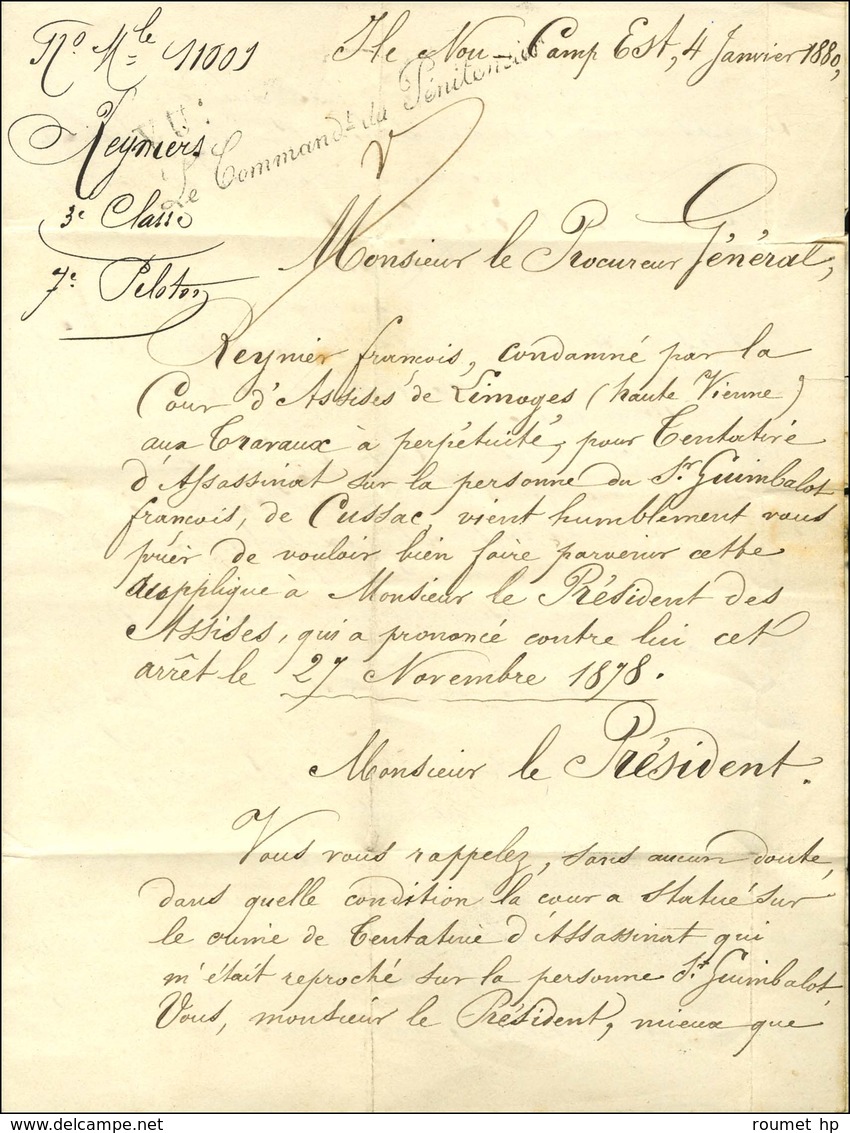 No Mle 11001
Ile Nou - Camp Est, 4 Janvier 1880,
Vu:
Le Commandt du Pénitencier
Reyniers
3e Classe
7e Peloton
Monsieur le Procureur Général,
Reynier françois, condamné par la
Cour d'Assises de Limoges (haute Vienne)
aux Travaux à perpétuité, pour Tentative
d'Assassinat sur la personne du Sr Guimbalot
françois, de Cussac, vient humblement vous
prier de vouloir bien faire parvenir cette
supplique à Monsieur le Président des
Assises, qui a prononcé contre lui cet
arrêt le 27 Novembre 1878.
Monsieur le Président.
Vous vous rappelez, sans aucun doute,
dans quelle condition la cour a statué sur
le crime de Tentative d'Assassinat qui
m'était reproché sur la personne Sr Guimbalot,
Vous, monsieur le Président, mieux que
roumet hp